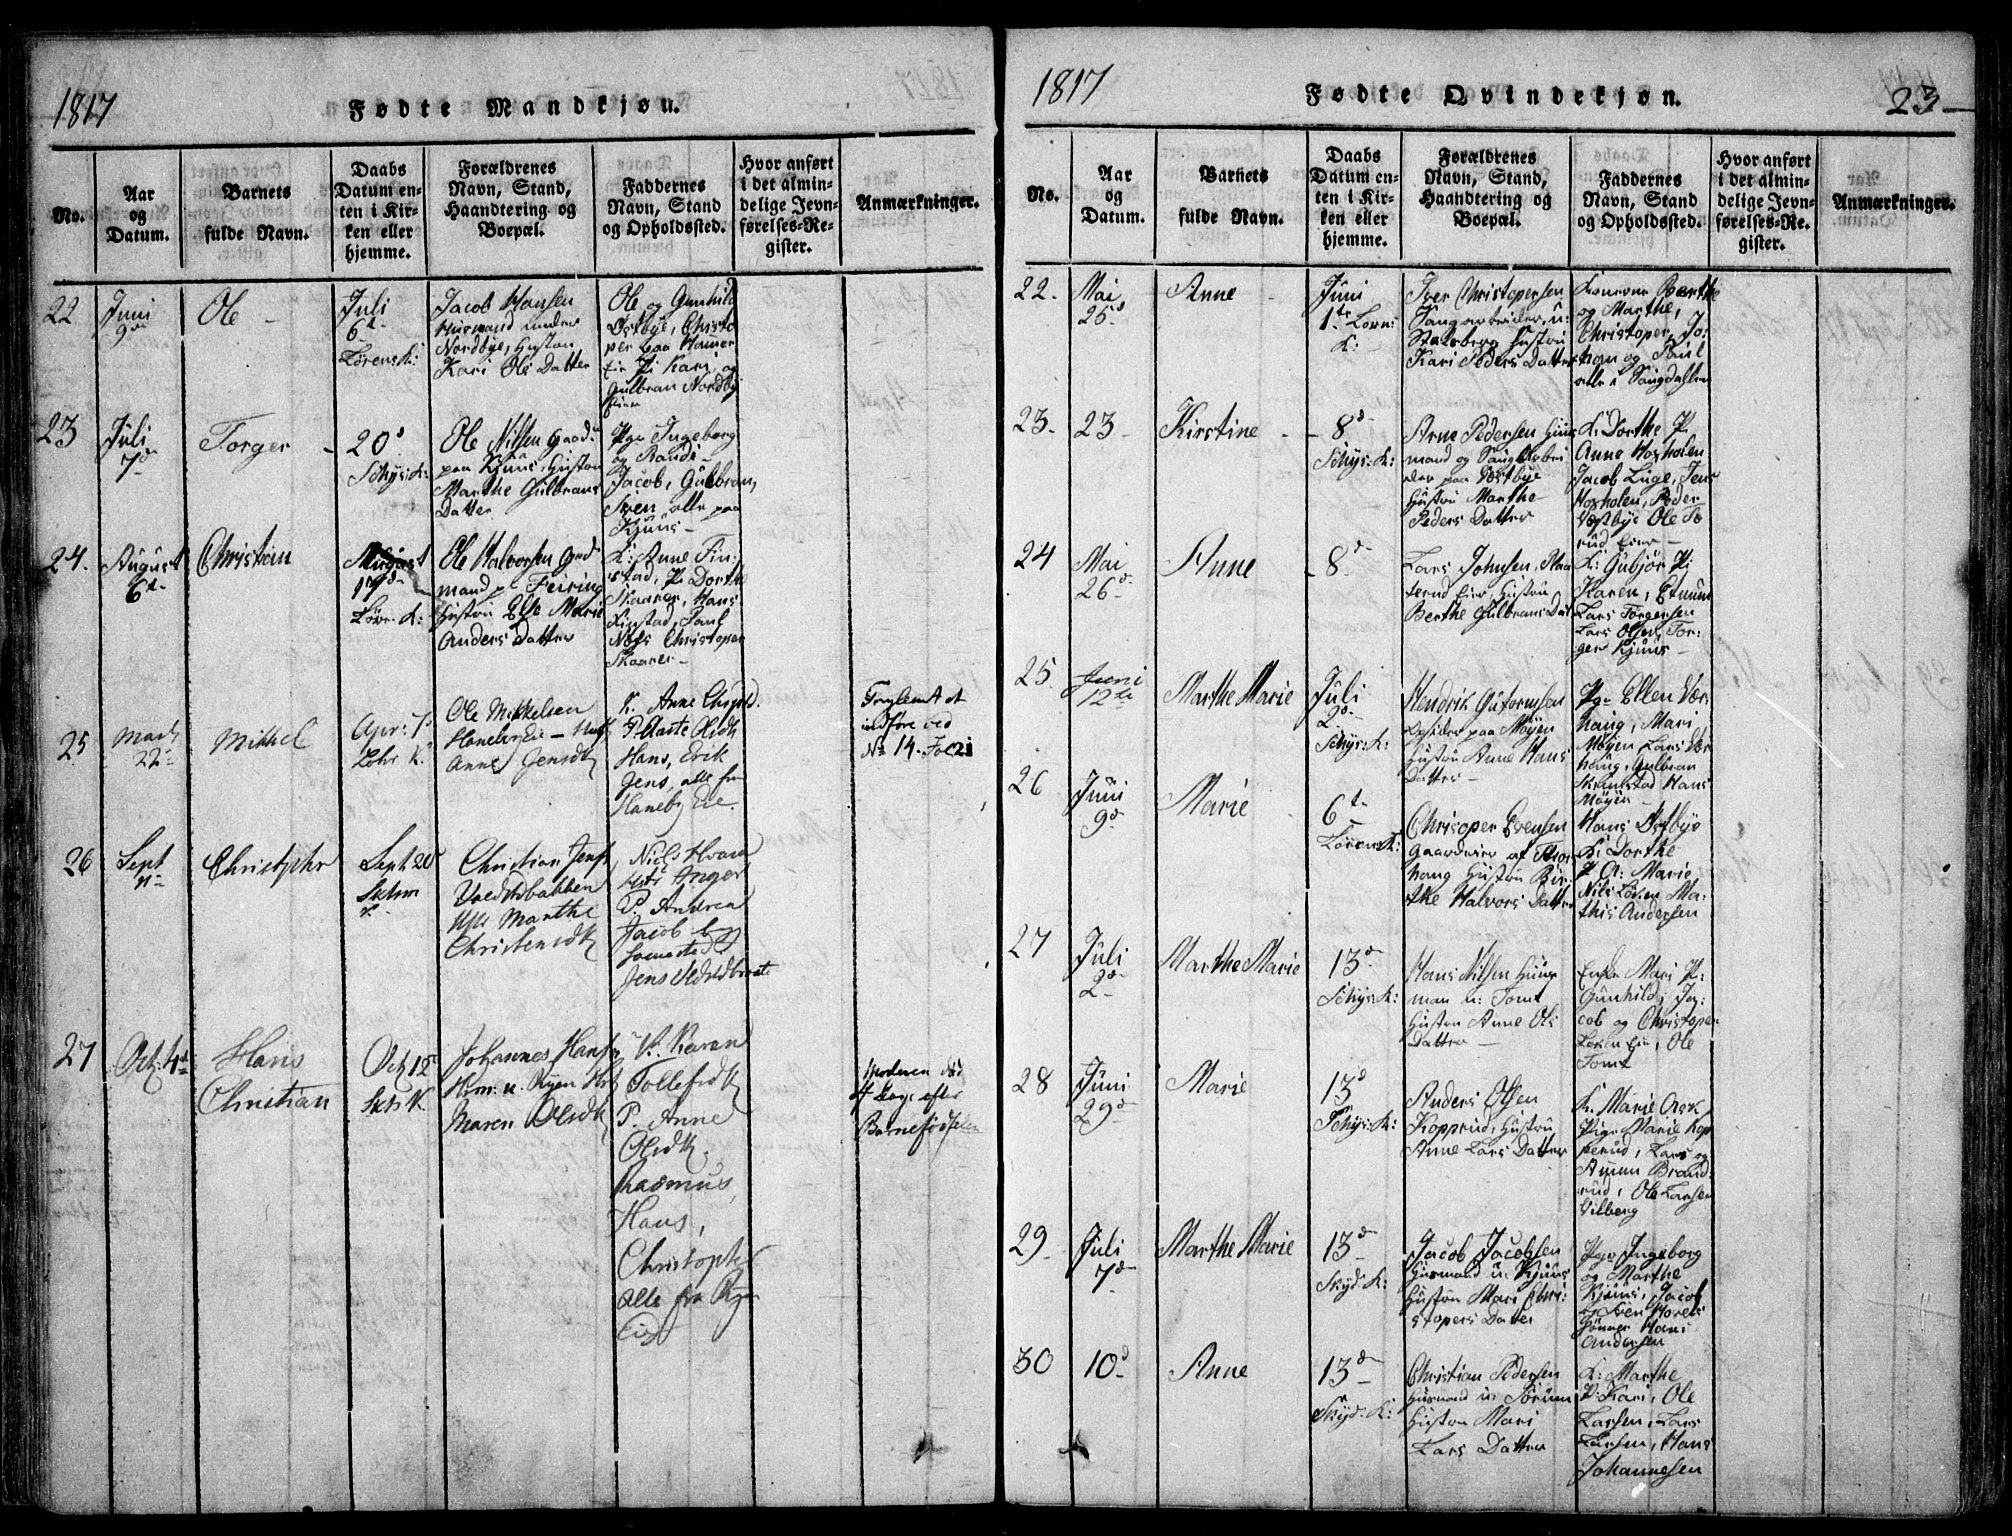 1817
Fødte Mandkjøn.
No.
Aar
og
Datum.
Barnets
fulde Navn.
Daabs
Datum en-
ten i Kir-
ken eller
hjemme.
Forældrenes
Navn, Stand,
Haandtering og
Boepæl.
Faddernes
Navn, Stand
og Opholdssted.
Hvor anført
i det almin-
delige Jevn-
førelses-Re-
gister.
Anmærkninger.
22
Juni
9de
Ole
Juli
6t
Lørensk:
Jacob Hansen
Huusmand under
Nordbye, Hustru
Kari Ols Datter
Ole og Gunhild
Østbye, Christo
per
Pi Kari og
Gulbran Nordby
23
Juli
7d
Torger
20d
Schys: K:
Ole Nilsen Gaard
paa Kjuus, Hustru
Marthe Gulbrans
Datter
Pge Ingeborg
og Randi
Jacob, Gulbran,
Sven alle paa
Kjuus
24.
August
6t
Christian
August
17d
Løre. K:
Ole Halvorsen Gad
mand p Feiring
Hustru Else Marie
Anders Datter
K: Anne Fin-
stad, P. Dorthe
Skaarer, Hans
Finstad, Poul
Christoper
Skaarer
25
Marts
22
Mikkel
Apr: 7
Lohr K.
Ole Mikkelsen
Haneby Eie
Anne Jensdtr
K. Anne
P.
Hans, Erik
Jens, alle fra
Haneby Eie.
indføre ved
No 14. Fol 21
26
Sept
11
Christopher
Sept 20
K.
Christian Jens
Marthe
Christensdtr
Niels
Inger
P. Andrea
Jacob
Jens
27
Oct: 4d
Hans
Christian
Oct 12
K.
Johannes Hans
Hsm. u. Ryen
Maren Olsdtr
K. Karen
Tollefsdtr
P. Anne
Olsdtr.
Rasmus,
Hans,
Christopher
alle fra Ryen
Eie
Moderen død
4 Dage efter
Barnefødselen
1817
Fødte Qvindekjøn.
23
No.
Aar
og
Datum.
Barnets
fulde Navn.
Daabs
Datum en-
ten i Kir-
ken eller
hjemme.
Forældrenes
Navn, Stand,
Haandtering og
Boepæl.
Faddernes
Navn, Stand
og Opholdssted.
Hvor anført
i det almin-
delige Jevn-
førelses-Re-
gister.
Anmærkninger.
22.
Mai
25d
Anne
Juni
1te Loren:
K:
Iver Christopersen
Saugarbeider u:
Stalsberg Hustru
Kari Peders Datter
Konerne Berthe
og Marthe,
Christoper, Jo-
han og Paul
alle i Saugdalen
23.
23
Kirstine
8d
Schys: K:
Arne Pedersen Huus
mand og Saugarbei
der paa Vestbye
Hustru Marthe
Peders Datter
K: Dorthe P.
Anne Hosholen
Jacob Luge, Jens
Hosholen, Peder
Vestbye Ole To
rud Eier
24
Mai
26d
Anne
8d
Lars Johnsen, Maa
serud Eier, Hustru
Berthe Gulbrans Dat
K: Gubjør P:
Karen, Emun
Lars Torgersen
Lars Olsen, Tor-
ger Kjuus
25
Juni
12te
Marthe Marie
Juli
2d
Schys: K:
Hendrik Guttormsen
Opsider paa Møyen
Hustru Anne Hans
Datter
Pge Ellen Vær
haug, Mari
Møyen Lars Vær
haug, Gulbran
Skrimstad Hans
Møyen
26
Juni
9d
Marie
6t
Lørensk:
Chrisoper Evensen
Gaardeier af Thor
haug Hustru Bir-
the Halvors Datter
Hans Østbye
K: Dorthe
P. A: Marie
Nils Løken Ma-
this Andersen
27
Juli
2d
Marthe Marie
13d
Schys: K:
Hans Nilsen Huus
man u: Tomt
Hustru Anne Ols
Datter
Enke Mari P:
Gunhild, Ja-
cob og Christoper
Løken Eie, Ole
Tomt
28
Juni
29d
Marie
13d
Schys: K:
Anders Olsen
Kopperud, Hustru
Anne Lars Datter
K. Marie Aesk
Pige Marie Kop
perud, Lars og
Amun Brand-
rud, Ole Larsen
Vilberg
29
Juli
7d
Marthe Marie
13d
Skyd: K:
Jacob Jacobsen
Husmand u. Kjuus
Hustru Mari Chri-
stopers Datter
Pge Ingeborg
og Marthe
Kjuus, Jacob
Hans
Andersen
30
10d
Anne
13d
Skyd: K:
Christian Pedersen
Husmand u. Sørum
Hustru Mari
Lars Datter
K: Marthe
P: Kari, Ole
Larsen, Lars
Larsen, Hans
Johannesen